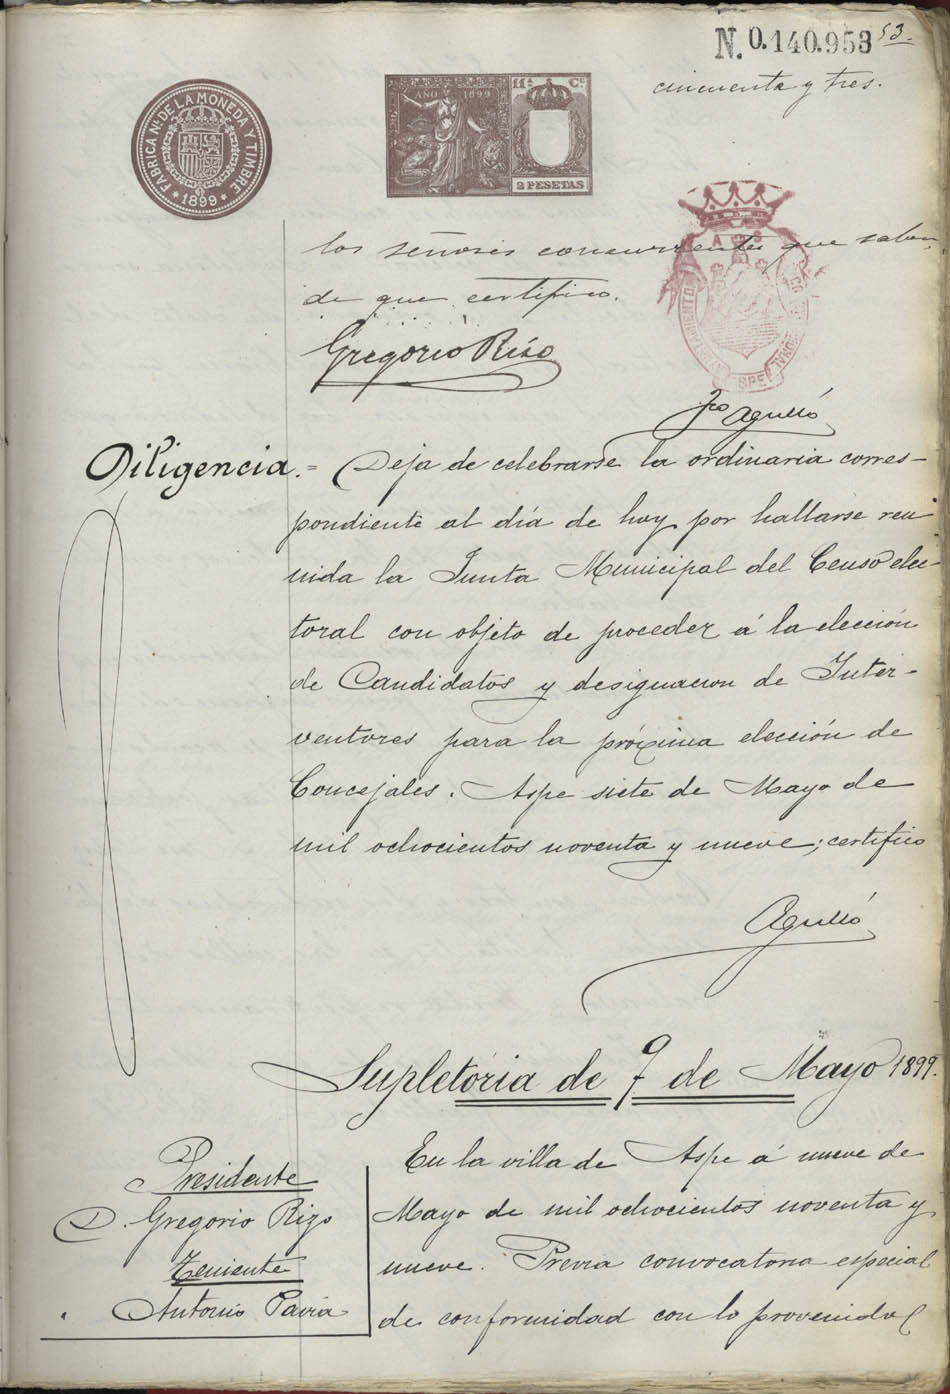 N. 0.140.953
53.
cincuenta y tres.
FABRICA Nl. DE LA MONEDA Y TIMBRE
1899
AÑO 1899
11ª Cª
2 PESETAS
los señores concurrentes que saben,
de que certifico.
Gregorio Rizo
Fco Agulló
Diligencia. = Deja de celebrarse la ordinaria corres-
pondiente al día de hoy por hallarse reu
nida la Junta Municipal del Censo elec-
toral con objeto de proceder á la elección
de Candidatos y designacion de Inter-
ventores para la próxima elección de
Concejales. Aspe siete de Mayo de
mil ochocientos noventa y nueve; certifico
Agulló
Supletoria de 9 de Mayo 1899.
Presidente
D. Gregorio Rizo
Teniente
" Antonio Pavia
En la villa de Aspe á nueve de
Mayo de mil ochocientos noventa y
nueve. Previa convocatoria especial
de conformidad con lo prevenido